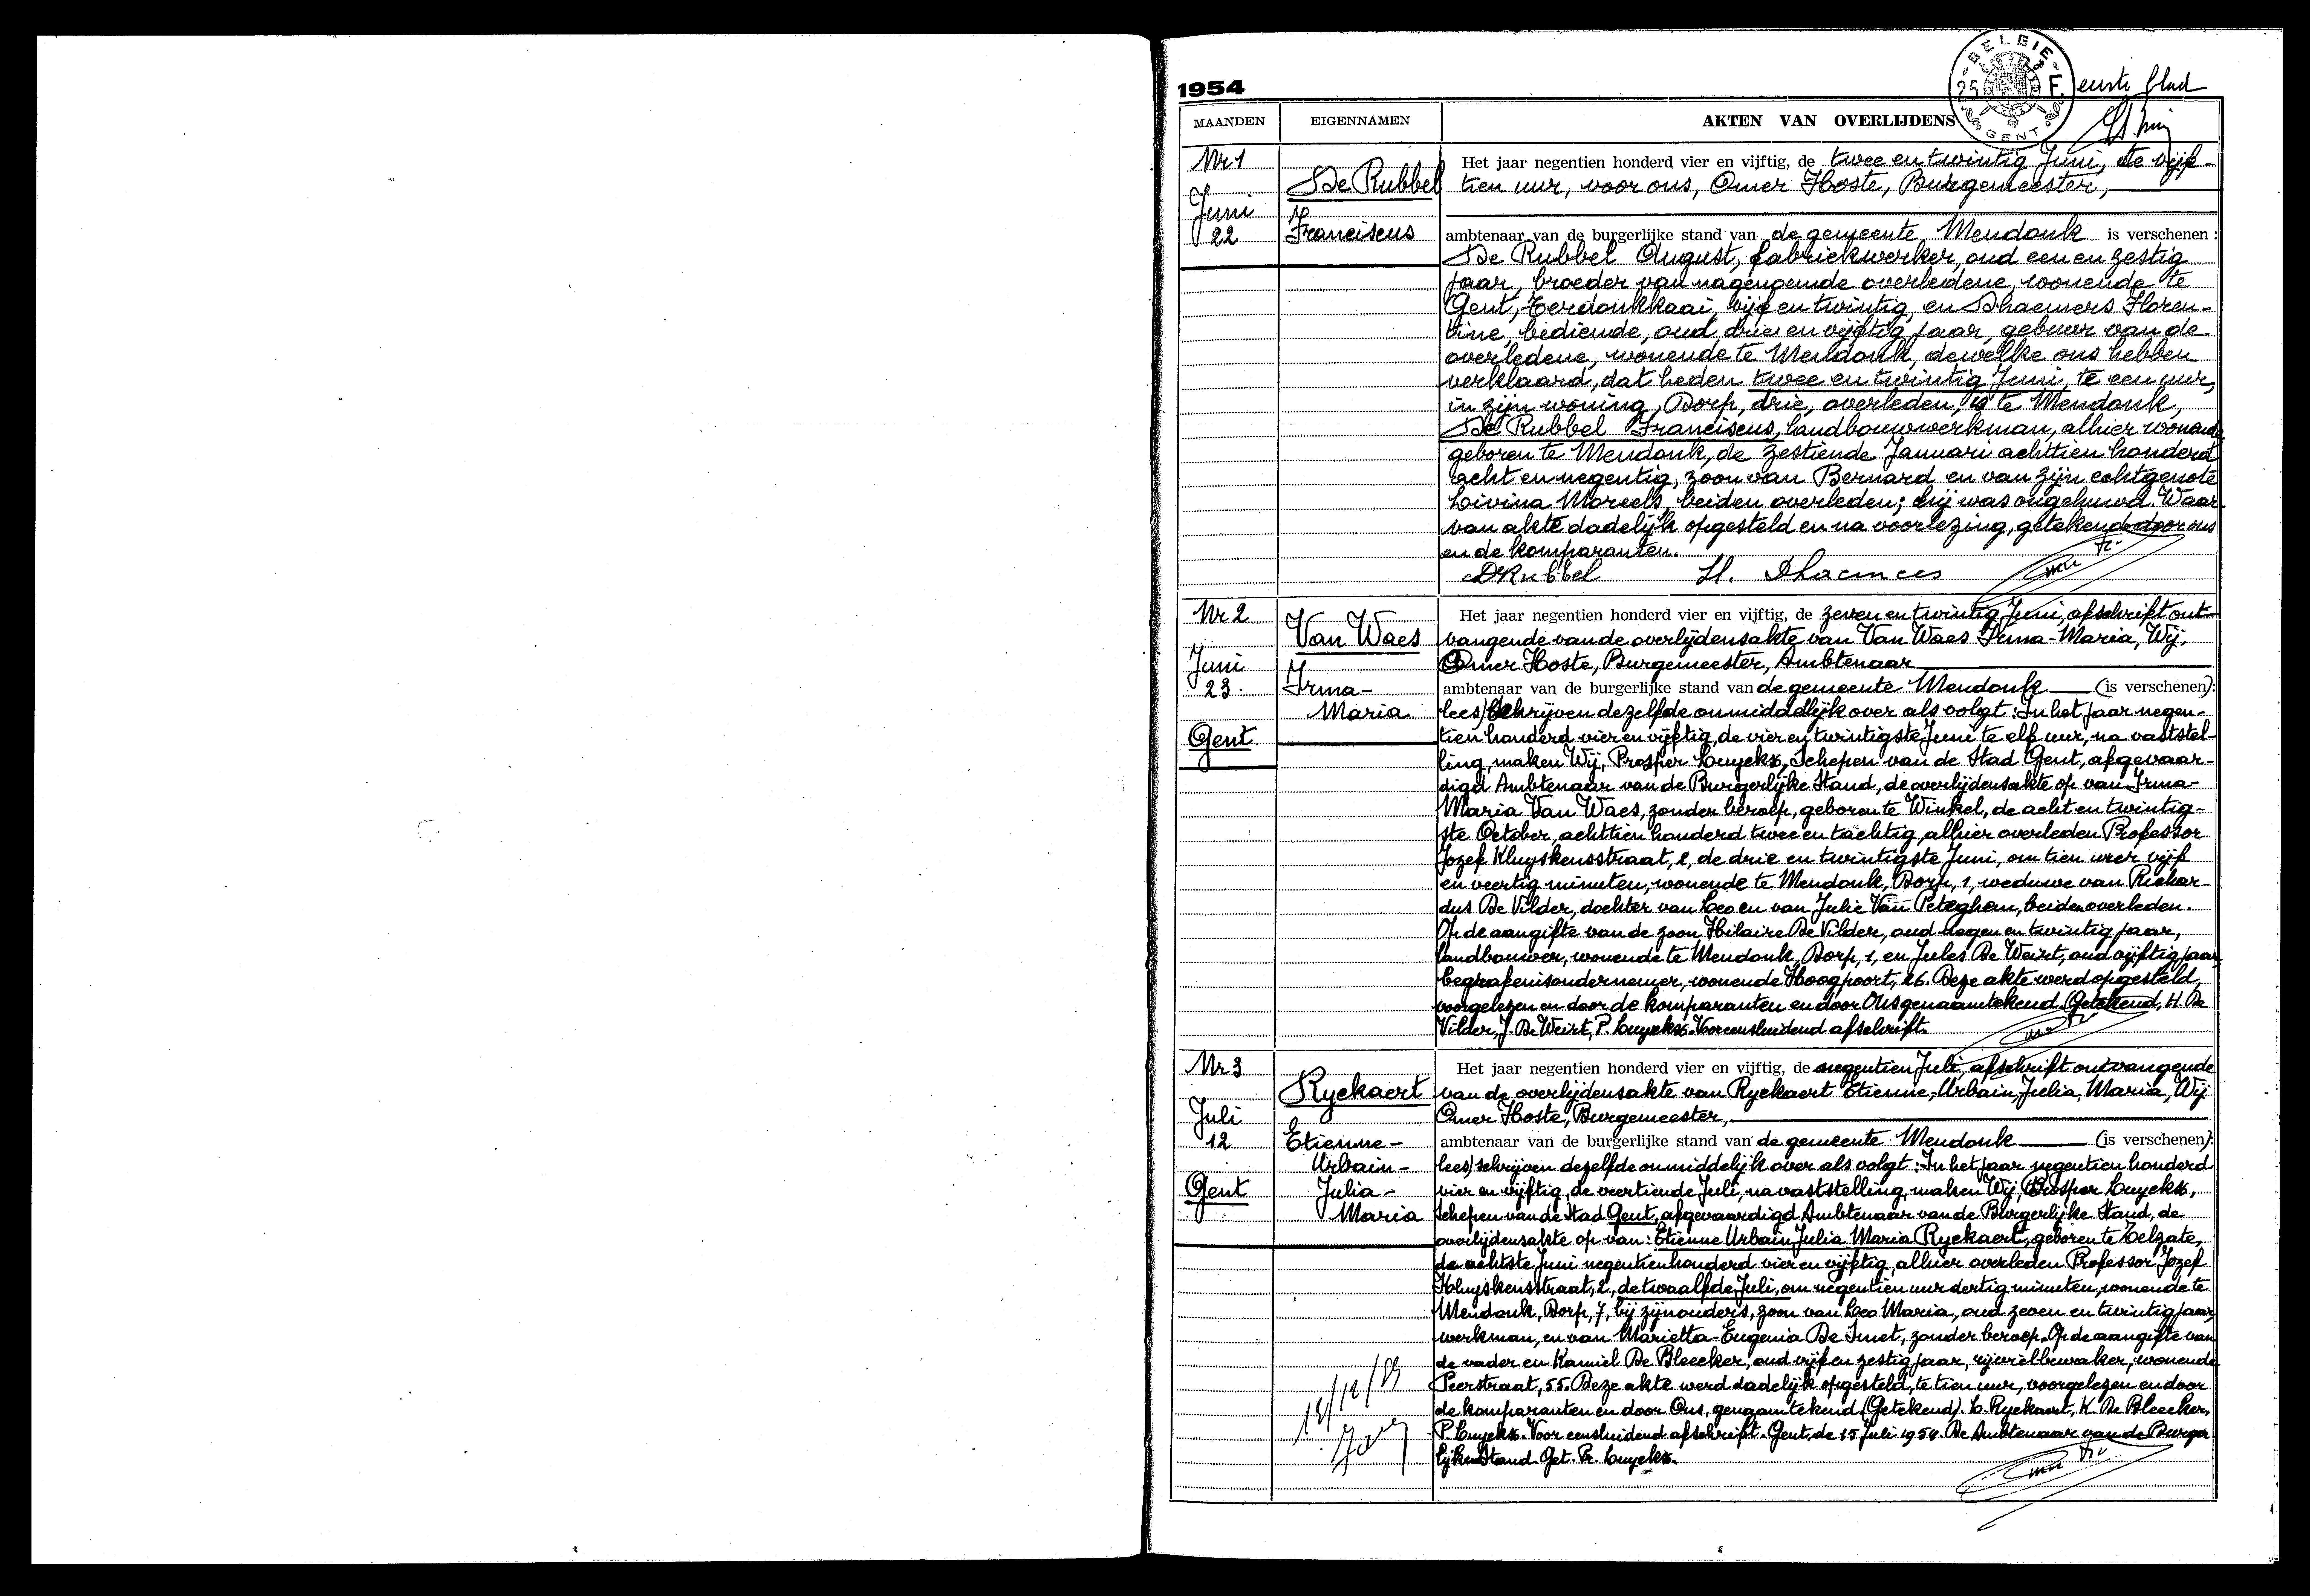 1954
BELGIE
25 F.
GENT
eerste blad
MAANDEN EIGENNAMEN AKTEN VAN OVERLIJDENS
Nr 1
Juni
22
De Rubbel
Franciscus
Het jaar negentien honderd vier en vijftig, de twee en twintig Juni, te vijf-
tien uur, voor ons, Omer Hoste, Burgemeester,
ambtenaar van de burgerlijke stand van de gemeente Mendonk is verschenen :
De Rubbel August, fabriekwerker, oud een en zestig
jaar, broeder van nagenoemde overledene, wonende te
Gent, Terdonkkaai, vijf en twintig, en Dhaemers Floren-
tine, bediende, oud drie en vijftig jaar, gebuur van de
overledene, wonende te Mendonk, dewelke ons hebben
verklaard, dat heden twee en twintig Juni, te een uur,
in zijn woning, Dorp, drie, overleden, is te Mendonk,
De Rubbel Franciscus, landbouwwerkman, alhier wonende
geboren te Mendonk, de zestiende Januari achttien honderd
acht en negentig, zoon van Bernard en van zijn echtgenote
Livina Mareels, beiden overleden; hij was ongehuwd. Waar-
van akte dadelijk opgesteld en na voorlezing, getekend door ons
en de komparanten.
DRubbel Fl. Dhaemers
Nr 2
Juni
23.
Gent
Van Waes
Irma-
Maria
Het jaar negentien honderd vier en vijftig, de zeven en twintig Juni, afschrift ont-
vangende van de overlijdensakte van Van Waes Irma-Maria, Wij.
Omer Hoste, Burgemeester, Ambtenaar
ambtenaar van de burgerlijke stand van de gemeente Mendonk (is verschenen):
lees) schrijven dezelfde onmiddelijk over als volgt : In het jaar negen-
tien honderd vier en vijftig, de vier en twintigste Juni te elf uur, na vaststel-
ling, maken Wij, Prosper Luyckx, Schepen van de Stad Gent, afgevaar-
digd Ambtenaar van de Burgerlijke Stand, de overlijdensakte op van Irma-
Maria Van Waes, zonder beroep, geboren te Winkel, de acht en twintig-
ste October, achttien honderd twee en tachtig, alhier overleden Professor
Jozef Kluyskensstraat, 2, de drie en twintigste Juni, om tien uur vijf
en veertig minuten, wonende te Mendonk, Dorp, 1, weduwe van Richar-
dus De Vilder, dochter van Leo en van Julie Van Peteghem, beiden overleden.
Op de aangifte van de zoon Hilaire De Vilder, oud negen en twintig jaar,
landbouwer, wonende te Mendonk, Dorp, 1, en Jules De Weirt, oud vijftig jaar,
begrafenisondernemer, wonende Hoogpoort, 26. Deze akte werd opgesteld,
voorgelezen en door de komparanten en door Ons genaamtekend. Getekend, H. De
Vilder, J. De Weirt, P. Luyckx. Voor eensluidend afschrift.
Nr 3
Juli
12
Gent
Ryckaert
Etienne-
Urbain-
Julia-
Maria
Het jaar negentien honderd vier en vijftig, de negentien Juli, afschrift ontvangende
van de overlijdensakte van Ryckaert Etienne, Urbain, Julia, Maria, Wij
Omer Hoste, Burgemeester,
ambtenaar van de burgerlijke stand van de gemeente Mendonk (is verschenen):
lees) schrijven dezelfde onmiddelijk over als volgt : In het jaar negentien honderd
vier en vijftig, de veertiende Juli, na vaststelling, maken Wij, Prosper Luyckx,
Schepen van de Stad Gent, afgevaardigd Ambtenaar van de Burgerlijke Stand, de
overlijdensakte op van : Etienne Urbain Julia Maria Ryckaert, geboren te Zelzate,
de achtste Juni negentienhonderd vier en vijftig, alhier overleden Professor Jozef
Kluyskensstraat, 2, de twaalfde Juli, om negentien uur dertig minuten, wonende te
Mendonk, Dorp, 7, bij zijn ouders, zoon van Leo Maria, oud zeven en twintig jaar,
werkman, en van Marietta-Eugenia De Smet, zonder beroep. Op de aangifte van
de vader en Kamiel De Bleecker, oud vijf en zestig jaar, rijwielbewaker, wonende
Peerstraat, 55. Deze akte werd dadelijk opgesteld, te tien uur, voorgelezen en door
de komparanten en door Ons, genaamtekend (Getekend). L. Ryckaert, K. De Bleecker,
P. Luyckx. Voor eensluidend afschrift. Gent, de 15 Juli 1954. De Ambtenaar van de Burger
lijke Stand. Get. Pr. Luyckx.